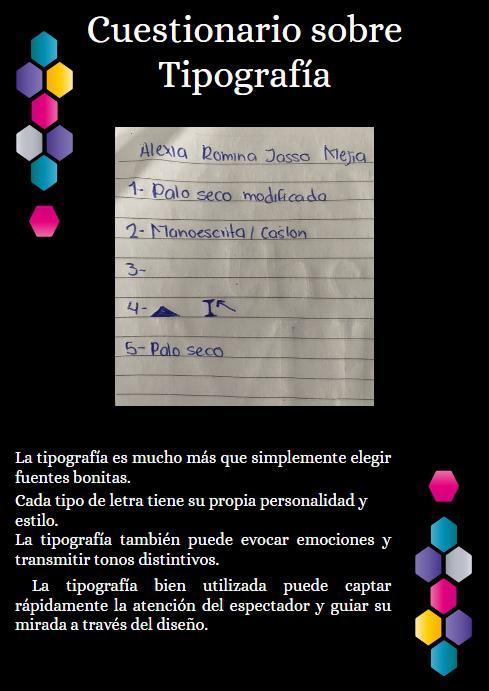 Cuestionario sobre
Tipografía
Alexia Romina Jasso Mejia
1- Palo seco modificada
2- Manoescrita / Caslon
3-
4- I
5- Palo seco
La tipografía es mucho más que simplemente elegir
fuentes bonitas.
Cada tipo de letra tiene su propia personalidad y
estilo.
La tipografía también puede evocar emociones y
transmitir tonos distintivos.
La tipografía bien utilizada puede captar
rápidamente la atención del espectador y guiar su
mirada a través del diseño.